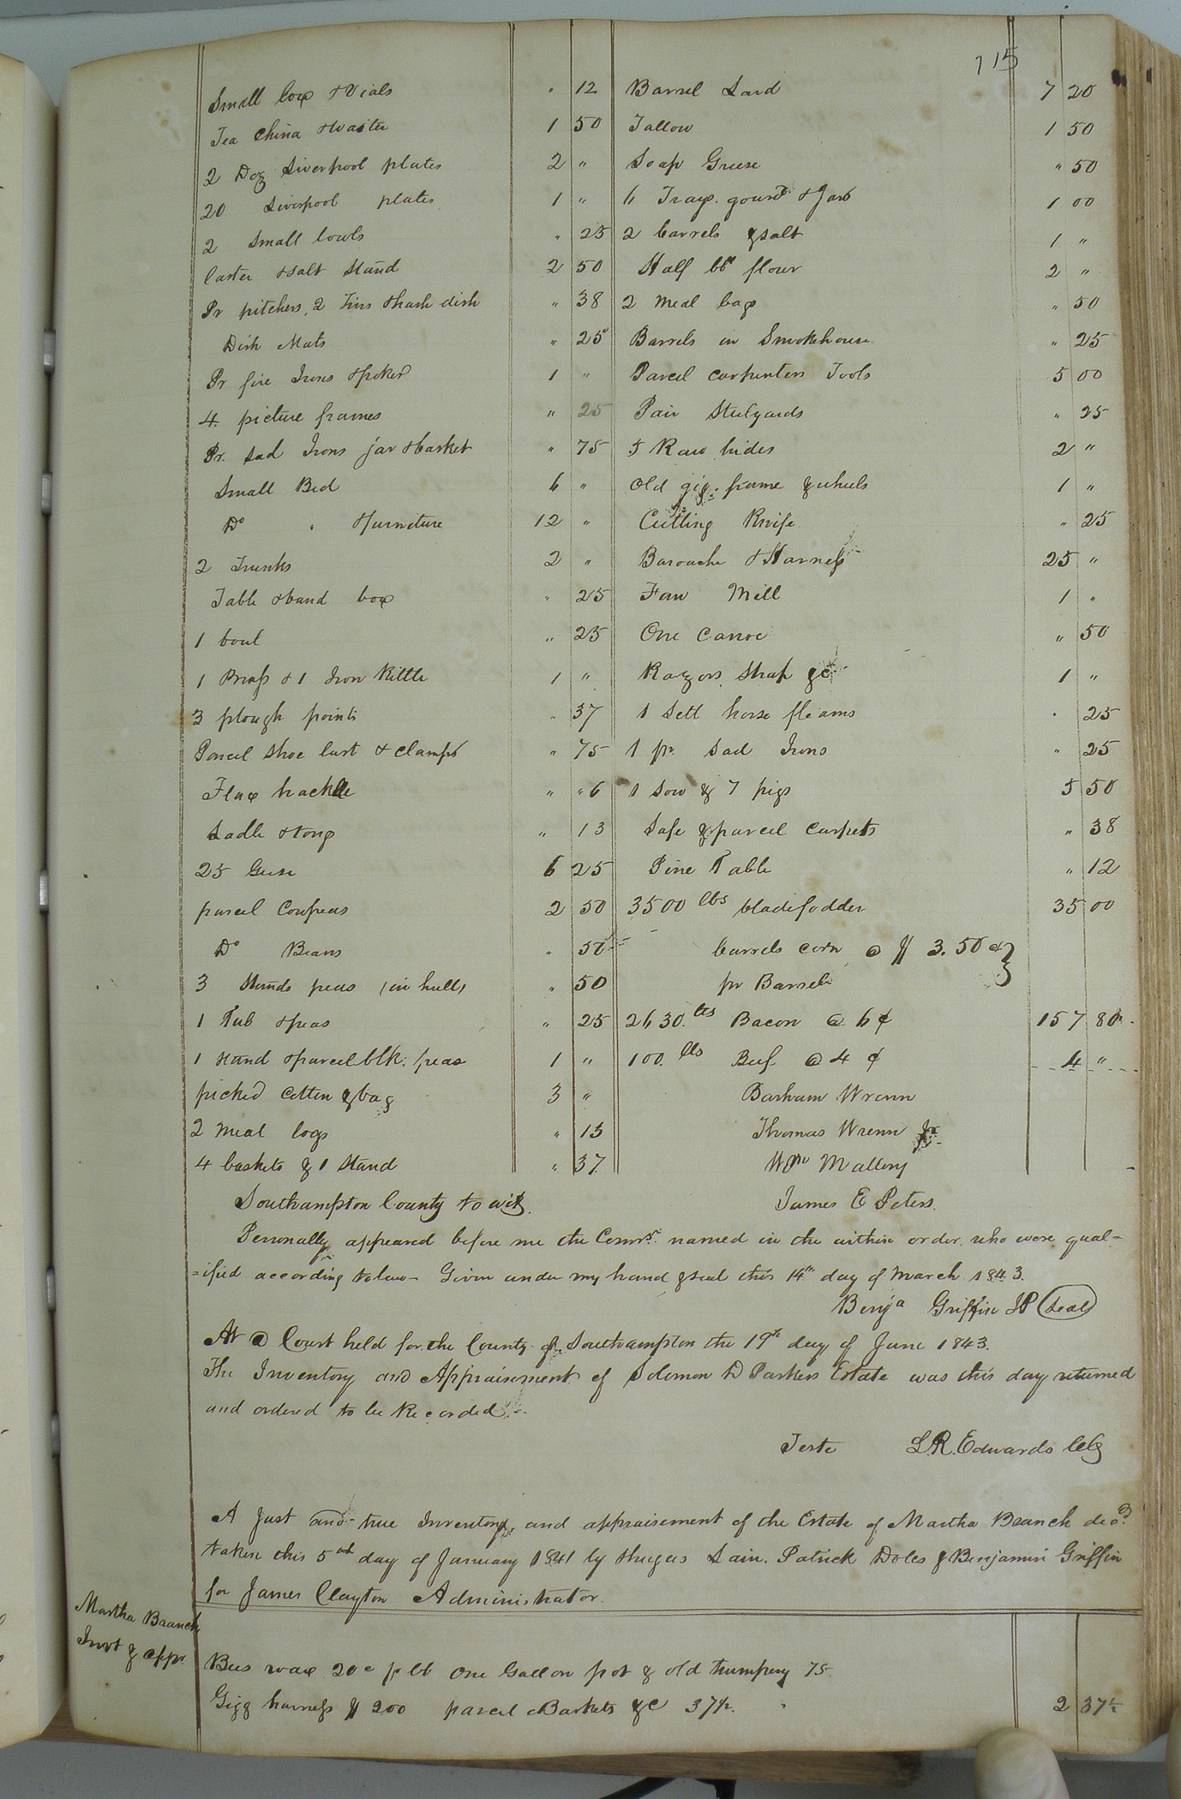 115
Small box & Vials " 12
Tea China & Waiter 1 50
2 Doz Liverpool plates 2 "
20 Liverpool plates 1 "
2 Small bowls " 25
Caster & Salt Stand 2 50
Pr pitchers, 2 Tins & hash dish " 38
Dish Mats " 25
Pr fire Irons & poker 1 "
4 picture frames " 25
Pr. Sad Irons jar & basket " 75
Small Bed 6 "
Do " & furniture 12 "
2 Trunks 2 "
Table & band box " 25
1 bowl " 25
1 Brass & 1 Iron Kittle 1 "
3 plough points " 37
Parcel Shoe last & Clamps " 75
Flax hackle " " 6
Ladle & tongs " 13
25 Geese 6 25
parcel Cowpeas 2 50
Do Beans " 50
3 Stands peas (in hulls) " 50
1 Tub & peas " 25
1 Stand & parcel blk. peas 1 "
picked Cotton & bag 3 "
2 Meal bags " 13
4 baskets & 1 Stand " 37
Barrel Lard 7 20
Tallow 1 50
Soap Grease " 50
6 Trays. gourds & Jars 1 00
2 barrels & salt 1 "
Half bbl flour 2 "
2 Meal bags " 50
Barrels in Smokehouse " 25
Parcel carpenters Tools 5 00
Pair Stilyards " 25
5 Raw hides 2 "
Old gig frame & wheels 1 "
Cutting Knife " 25
Barouche & Harness 25 "
Fan Mill 1 "
One Canoe " 50
Razors, Strap &c 1 "
1 Sett horse fleams " 25
1 pr. Sad Irons " 25
1 Sow & 7 pigs 5 50
Safe & parcel Carpets " 38
Pine Table " 12
3500 lbs bladefodder 35 00
barrels corn @ $ 3.50 cts
pr Barrel
2630 lbs Bacon @ 6 ¢ 157 80
100 lbs Beef @ 4 ¢ 4 "
Barham Wrenn
Thomas Wrenn Jr.
Wm Mallory
James E Peters.
Southampton County to wit.
Personally appeared before me the Commrs. named in the within order, who were qual-
=ified according to law – Given under my hand & seal this 14th day of March 1843.
Benja Griffin JP (Seal)
At a Court held for the County of Southampton the 19th day of June 1843.
The Inventory and Appraisement of Solomon D Parkers Estate was this day returned
and ordered to be Recorded. –
Teste L. R. Edwards Clk
A Just and true Inventory, and appraisement of the Estate of Martha Branch decd.
taken this 5th day of January 1841 by Lain. Patrick Doles & Benjamin Griffin
for James Clayton Administrator.
Martha Branch
Invt & appr
Bees wax 20c p lb One Gallon pot & old trumpery 75
Gigg harness $ 200 parcel Baskets &C 37½. 2 37½